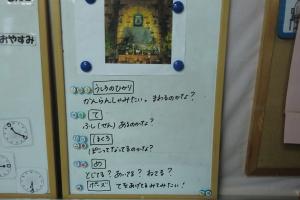 おやすみ
うしろのひかり
かんらんしゃみたい。まわるのかな?
て
ふし(せん)あるのかな?
ほくろ
ぼこってなってるのかな?
め
とじてる? あいてる? ねてる?
ポーズ てをあげてるみてみたい!